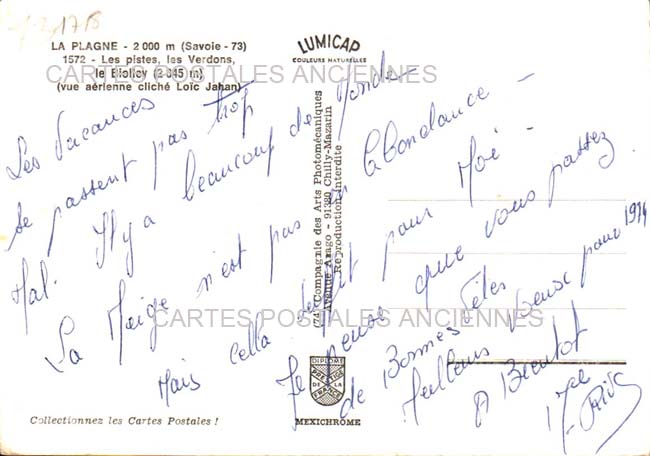 LA PLAGNE - 2 000 m (Savoie - 73)
1572 - Les pistes, les Verdons,
le Biolley (2 345 m)
(vue aérienne cliché Loïc Jahan)
LUMICAP
COULEURS NATURELLES
CARTES POSTALES ANCIENNES
Les Vacances
se passent pas trop
Mal. Il y a beaucoup de Monde
La Neige n'est pas en Abondance -
Mais cella suffit pour Moi -
Je pense que vous passez
de Bonnes fêtes
Meilleurs Voeux pour 1974
A Bientot
Compagnie des Arts Photomécaniques
Avenue Arago - 91380 Chilly-Mazarin
Reproduction interdite
CARTES POSTALES ANCIENNES
DIPLOME
PRESTIGE
DE LA
FRANCE
MEXICHROME
Collectionnez les Cartes Postales !